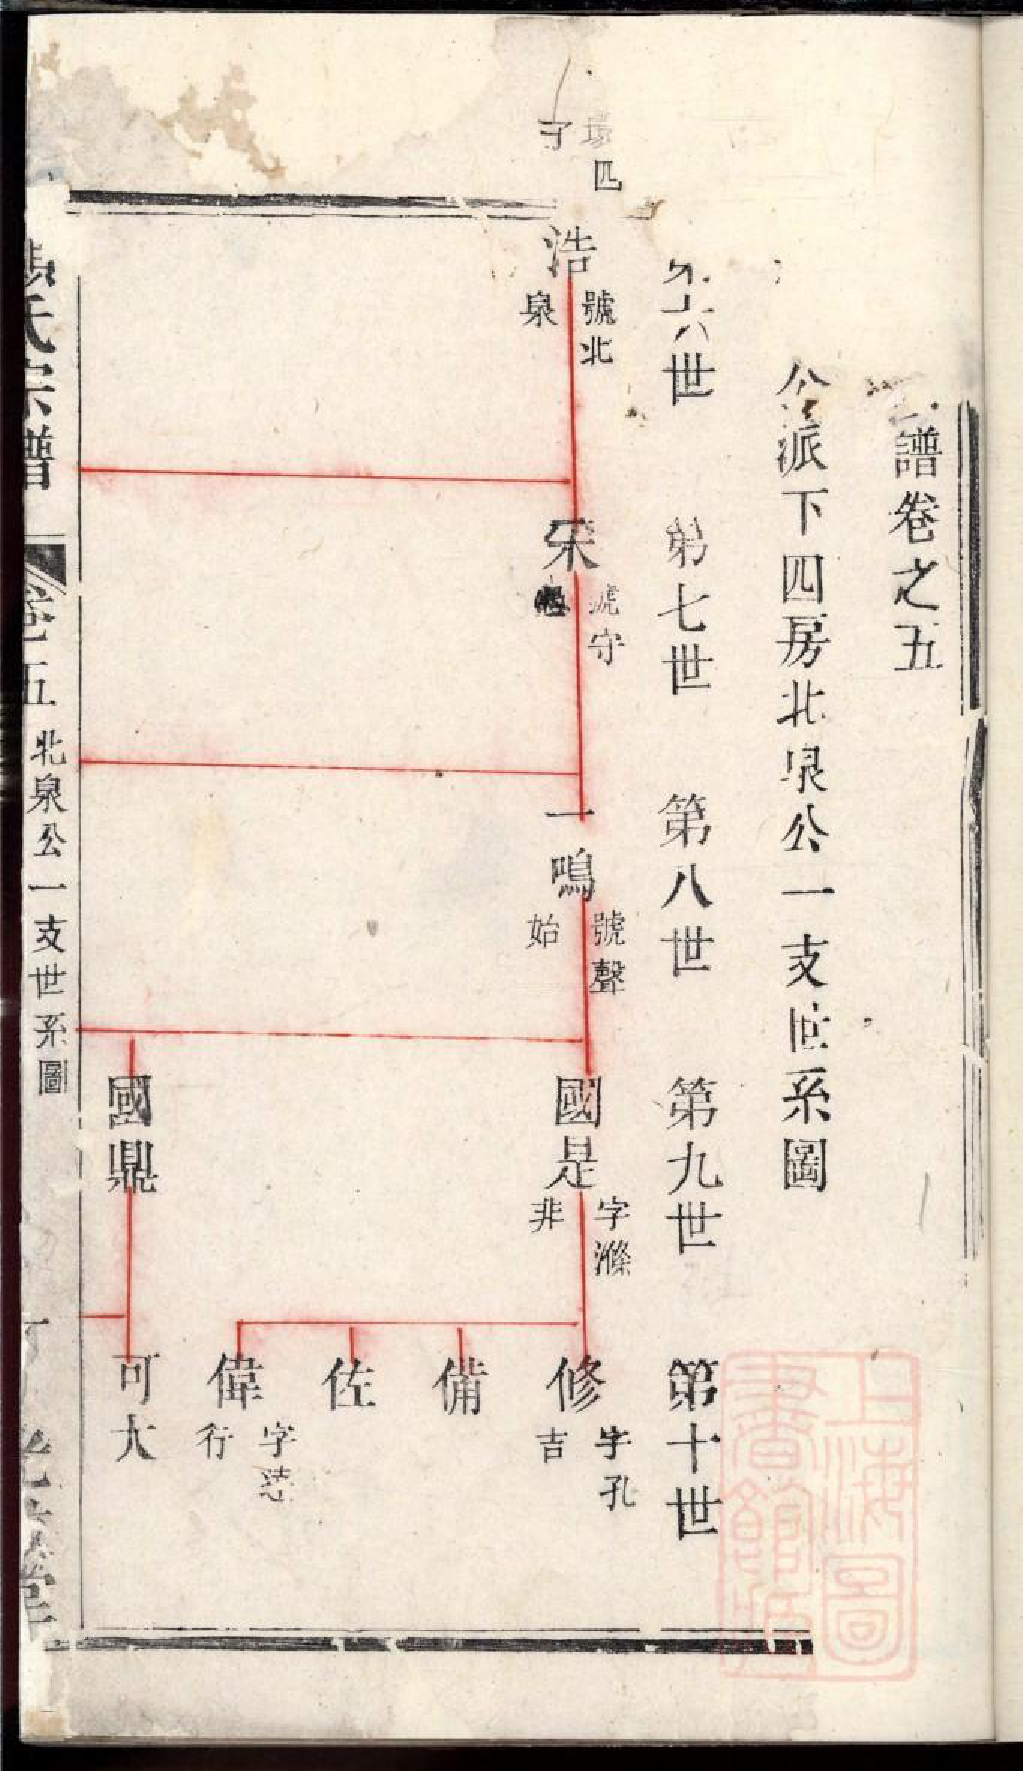 譜卷之五
公派下四房北泉公一支世系圖
六世
第七世
第八世
第九世
第十世
四
子
浩
號北
泉
宋
號守
一鳴
號聲
始
國是
字滌
非
修
字孔
吉
備
佐
偉
行
字
國鼎
可大
氏宗譜
卷五
北泉公一支世系圖
上海圖
書館藏